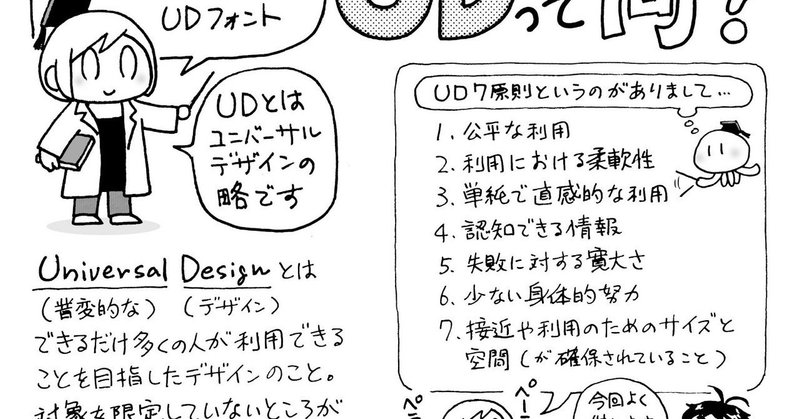 UDフォント
UDって何?
UDとは
ユニバーサル
デザインの
略です
Universal Designとは
(普変的な) (デザイン)
できるだけ多くの人が利用できる
ことを目指したデザインのこと。
対象を限定していないところが
UD7原則というのがありまして…
1. 公平な利用
2. 利用における柔軟性
3. 単紙で直感的な利用
4. 認知できる情報
5. 失敗に対する寛大さ
6. 少ない身体的努力
7. 接近や利用のためのサイズと
空間(が確保されていること)
今回よく